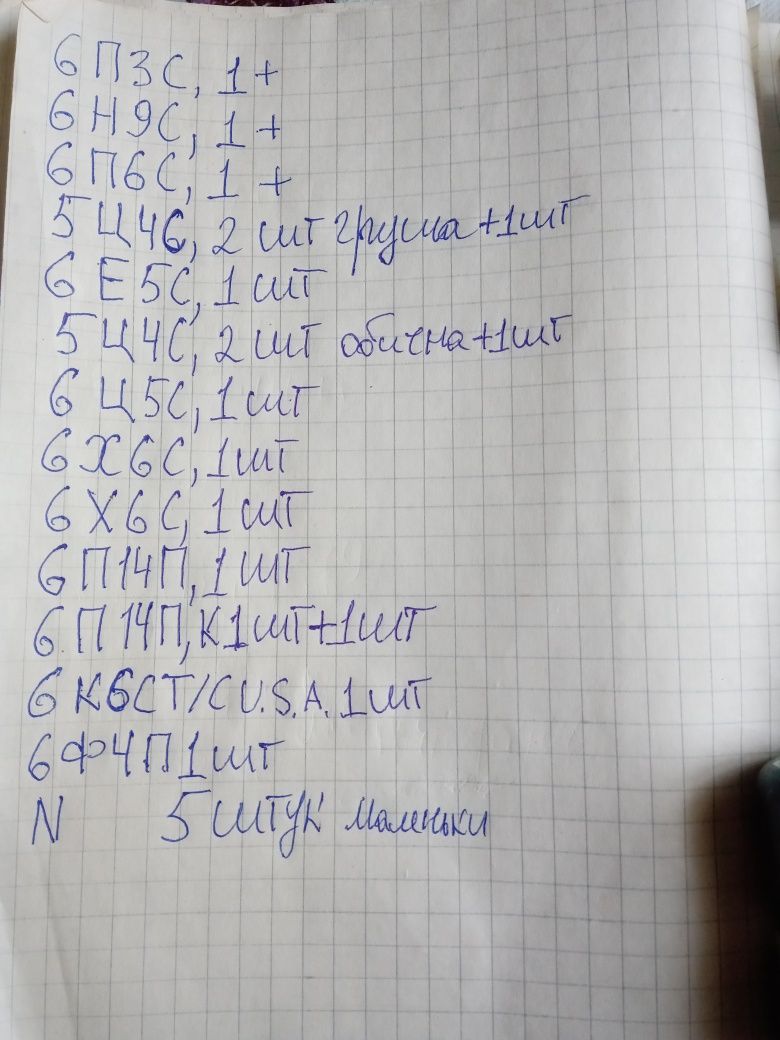 6П3С, 1+
6Н9С, 1+
6П6С, 1+
5Ц4С, 2 шт груша+1шт
6Е5С, 1шт
5Ц4С, 2шт обична+1шт
6Ц5С, 1шт
6Х6С, 1шт
6Х6С, 1шт
6П14П, 1шт
6П14П, К1шт+1шт
6К6СТ/С U.S.A. 1шт
6Ф4П 1шт
N 5 штук маленьки